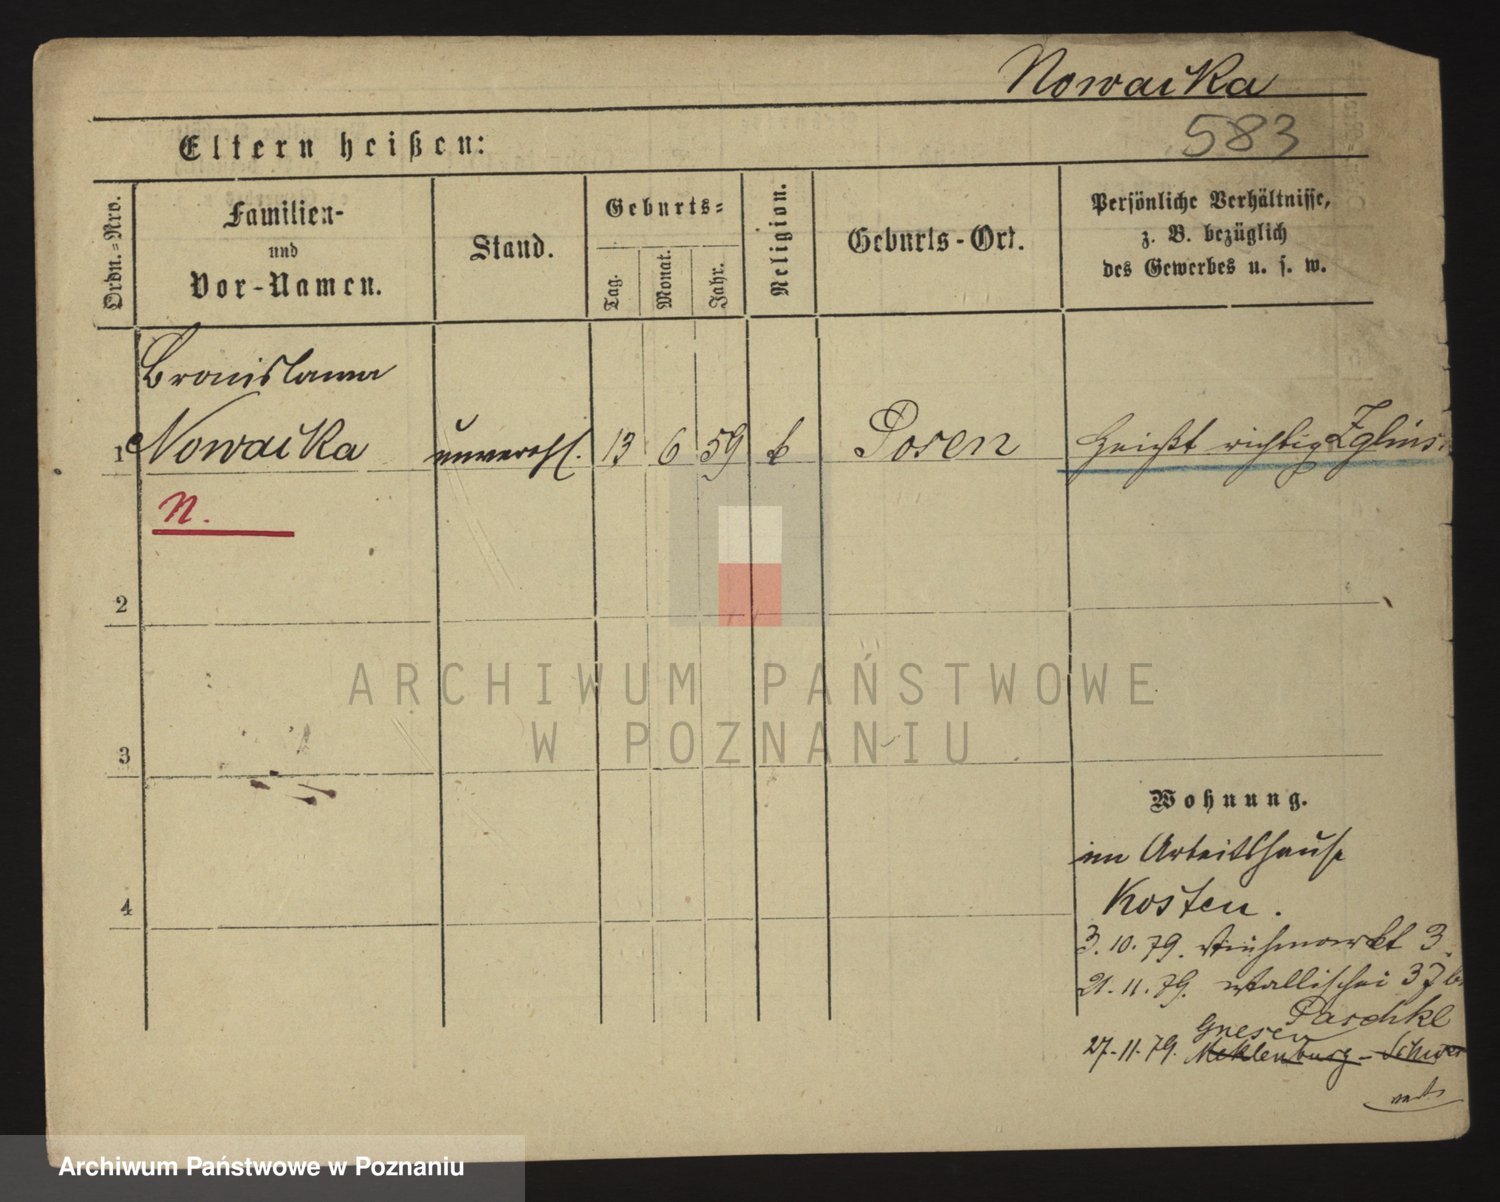 Nowaika
583
Eltern heißen:
Ordn.=Nro.
Familien-
und
Vor-Namen.
Stand.
Geburts=
Tag.
Monat.
Jahr.
Religion.
Geburts-Ort.
Persönliche Verhältnisse,
z. B. bezüglich
des Gewerbes u. s. w.
Bronislawa
1 Nowaika unverehl. 13 6 59 k Posen heißt richtig Zglins
N.
2
3
4
Wohnung.
im Arbeitshause
Kosten.
3.10.79. Viehmarkt 3.
21.11.79. Wallischei 37
Paschke
Gnesen
27.11.79. Meklenburg-Schwer
ARCHIWUM PAŃSTWOWE
W POZNANIU
Archiwum Państwowe w Poznaniu